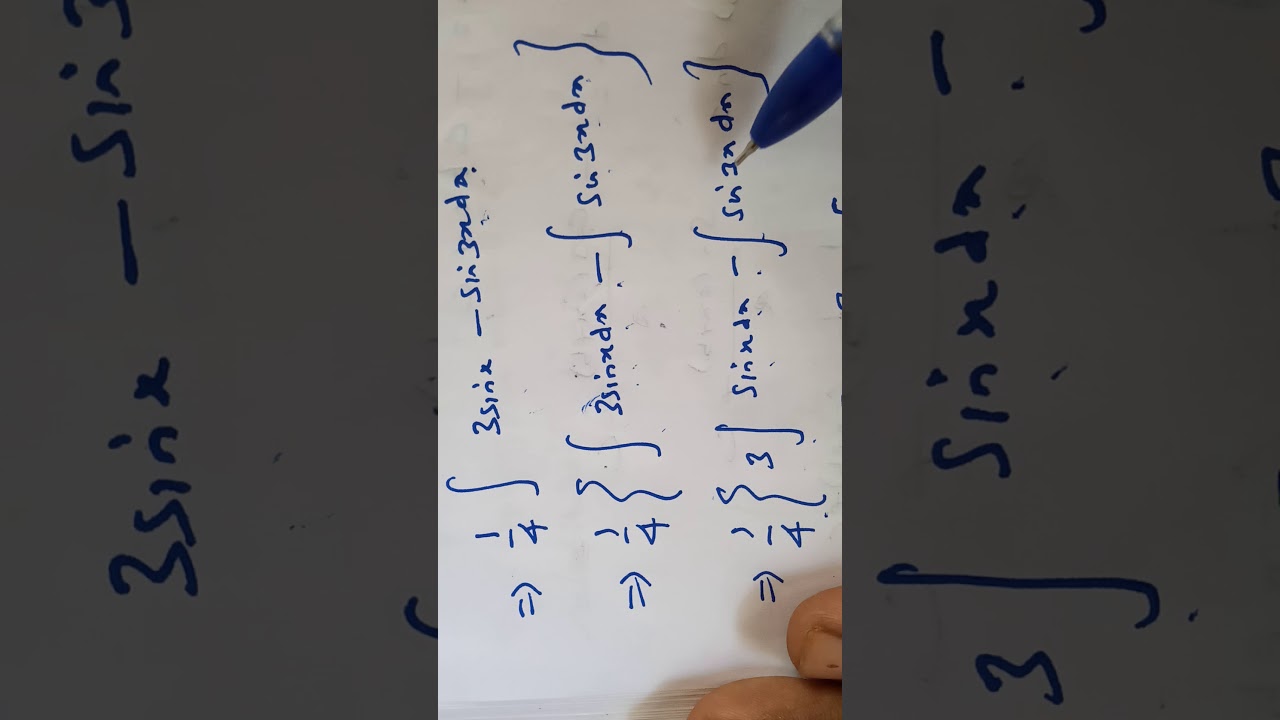 ⇒ 1/4 ∫ 3sinx − sin3xdx.
⇒ 1/4 { ∫ 3sinxdx. − ∫ sin3xdx }
⇒ 1/4 { 3 ∫ sinxdx. − ∫ sin3xdx }